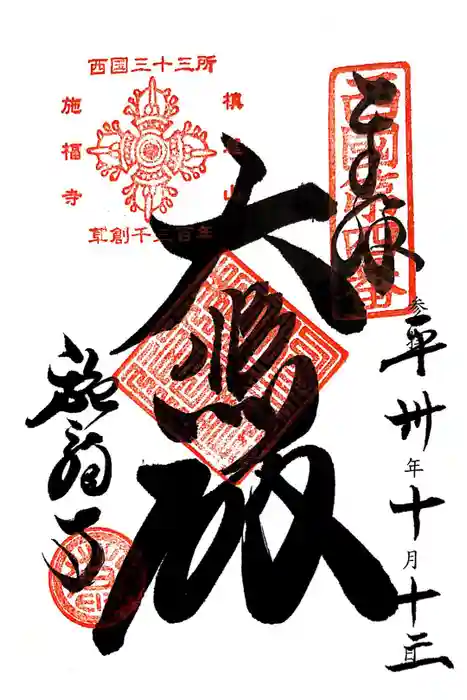 奉拝
西國第四番
参平卅年十月十二日
西國三十三所
槇尾山
施福寺
草創千三百年
大悲殿
施福寺